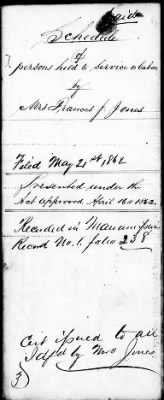 Paid
Schedule
of
persons held to service or labor
by
Mrs Frances J. Jones
Filed May 21st, 1862
Presented under the
Act approved April 16th 1862.
Recorded in
Record No. 1. folio 238
Cert issued to all
by Mrs Jones
3